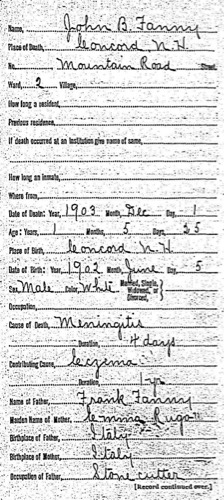 Name, John B. Fanny
Place of Death, Concord N. H.
No. Mountain Road Street
Ward, 2 Village,
How long a resident,
Previous residence,
If death occurred at an institution give name of same,
How long an inmate,
Where from,
Date of Death: Year, 1903 Month, Dec Day, 1
Age: Years, 1 Months, 5 Days, 25
Place of Birth, Concord N. H.
Date of Birth: Year, 1902 Month, June Day, 5
Sex, Male Color, White Married, Single, Widowed, or Divorced,
Occupation,
Cause of Death, Meningitis
Duration, 4 days
Contributing Cause, Eczema
Duration, 1 yr.
Name of Father, Frank Fanny
Maiden Name of Mother, Emma Ruga
Birthplace of Father, Italy
Birthplace of Mother, Italy
Occupation of Father, Stone cutter
[Record continued over.]